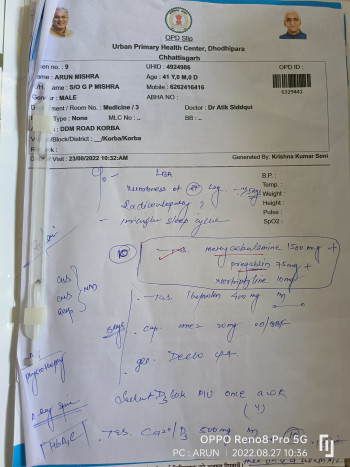 OPD Slip
Urban Primary Health Center, Dhodhipara
Chhattisgarh
on no. : 9 UHID : 4924986 OPD ID :
ame : ARUN MISHRA Age : 41 Y,0 M,0 D
ame : S/O G P MISHRA Mobile : 6262416416 0329441
Gen er : MALE ABHA NO :
D ment / Room No. : Medicine / 3 Doctor : Dr Atik Siddqui
Type : None MLC No : .. BB : ..
: DDM ROAD KORBA
V /Block/District : __/Korba/Korba
k :
Visit : 23/08/2022 10:32:AM Generated By: Krishna Kumar Soni
B.P. :
C/o - LBA Temp. :
numbness of leg Weight :
- Radiculopathy ? Height :
Pulse :
- irregular sleep cycle SpO2 :
Tab. methylcobalamine 1500 mg +
pregablin 75mg +
nortriptyline 10mg
CNS
CVS NAD
Resp
- Tab. Ibuprofen 400 mg
5 days Cap. omez 20mg OD/BBF
physiotherapy
gel. Diclo
X-Ray spine
Inj D3 60k IU once a wk
(4)
HbA1C
- Tab. Ca++/D3 500mg
OPPO Reno8 Pro 5G
PC : ARUN | 2022.08.27 10:36